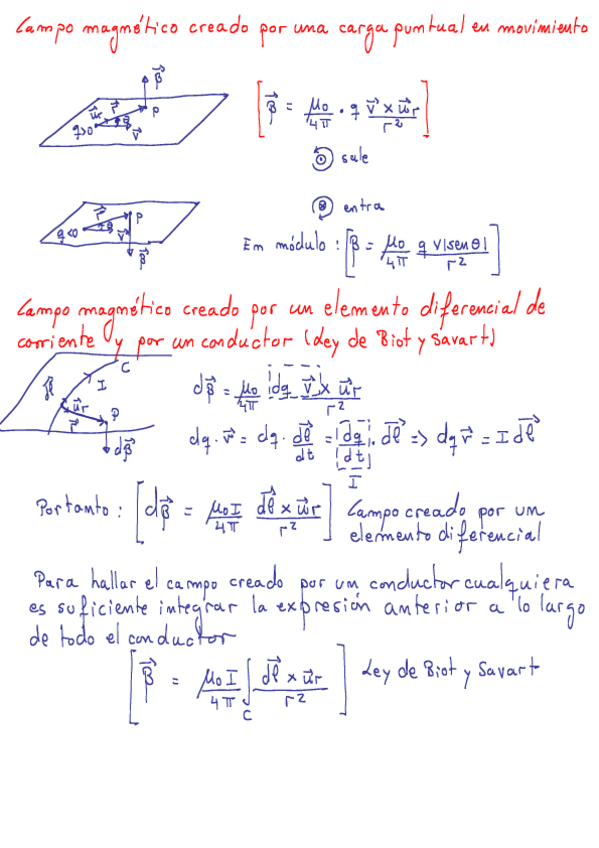 Campo magnético creado por una carga puntual en movimiento
β⃗
u⃗r r⃗ θ P
q>0 v⃗
[β⃗ = μ₀/4π · q v⃗ × u⃗r/r²]
sale
r⃗ P
q<0 θ v⃗
β⃗
entra
En módulo : [β = μ₀/4π q v|senθ|/r²]
Campo magnético creado por un elemento diferencial de
corriente y por un conductor (Ley de Biot y Savart)
C
I
dl⃗
u⃗r P
r⃗ dβ⃗
dβ⃗ = μ₀/4π dq v⃗ × u⃗r/r²
dq · v⃗ = dq · dl⃗/dt = dq/dt · dl⃗ => dq v⃗ = I dl⃗
I
Por tanto : [dβ⃗ = μ₀I/4π dl⃗ × u⃗r/r²] Campo creado por un
elemento diferencial
Para hallar el campo creado por un conductor cualquiera
es suficiente integrar la expresión anterior a lo largo
de todo el conductor
[β⃗ = μ₀I/4π ∫C dl⃗ × u⃗r/r²] Ley de Biot y Savart